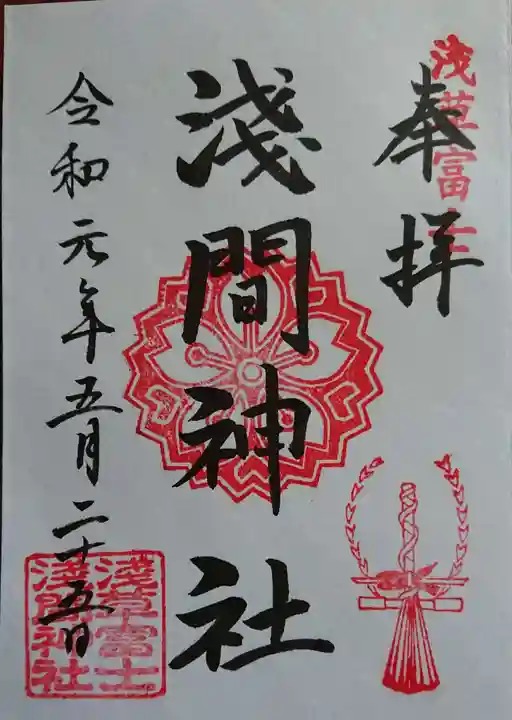 浅草富士
奉拝
淺間神社
令和元年五月二十五日
淺草富士
淺間神社